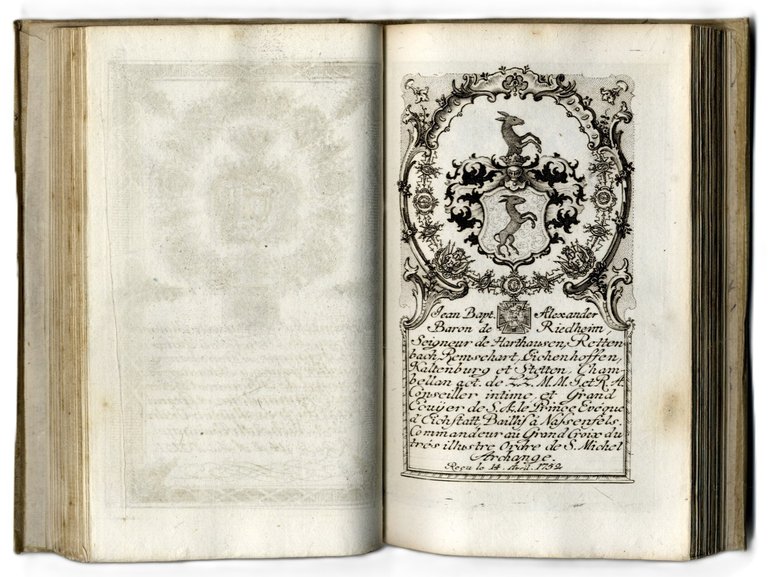 Jean Bapt. Alexander
Baron de Riedheim,
Seigneur de Harthausen, Rotten
bach, Remschart, Eichenhoffen,
Kaltenburg et Stetten, Cham-
bellan act. de ZZ. M.M. J. et R. A
Conseiller intime, et Grand
Ecuÿer de S. A. le Prince Eveque
d'Eichstatt, Baillif à Nassenfels,
Commandeur au Grand Croix du
tres illustre Ordre de S. Michel
Archange.
Reçu le 14. Avril. 1752